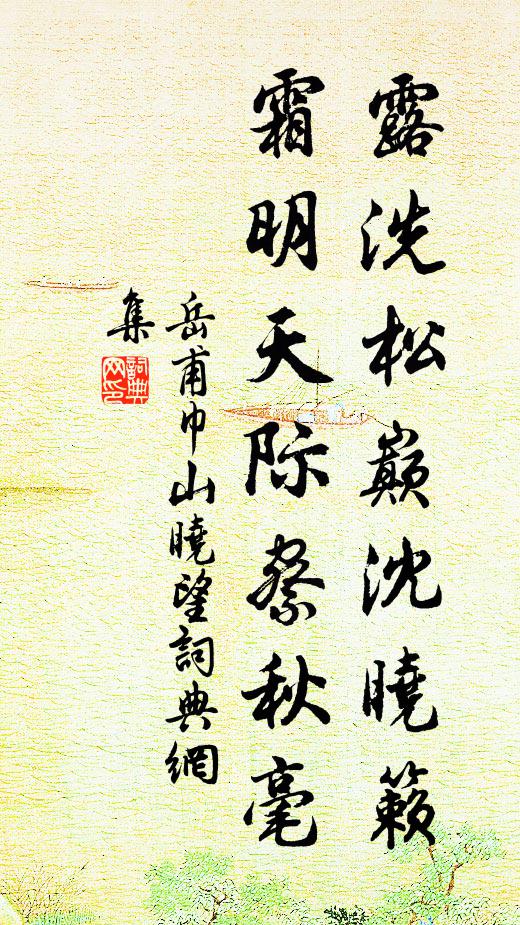 露洗松巔沈曉籟
霜明天际察秋毫
岳甫巾山曉望詞典網
集
詞典
网印